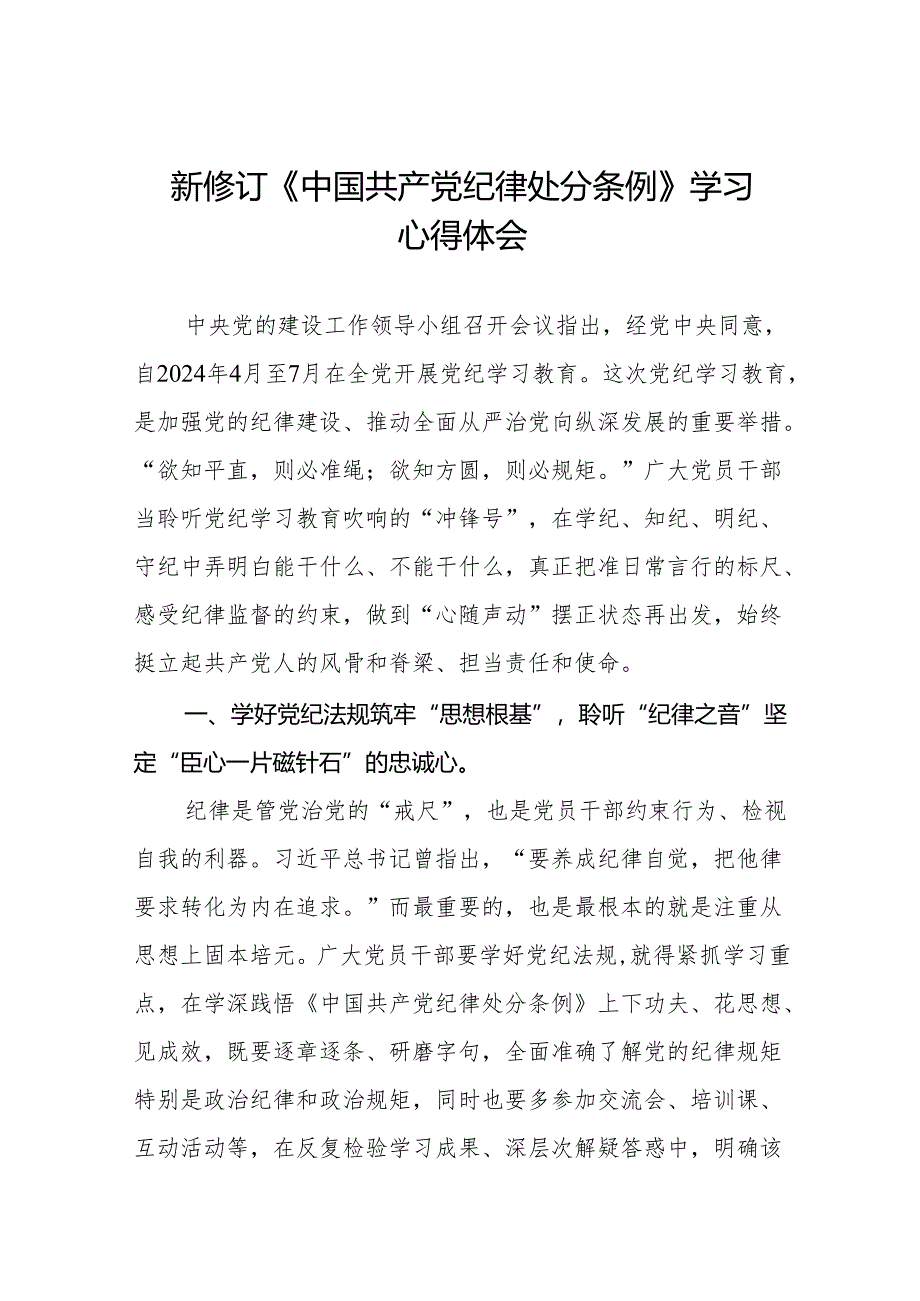 新修订《中国共产党纪律处分条例》学习
心得体会
中央党的建设工作领导小组召开会议指出，经党中央同意，
自2024年4月至7月在全党开展党纪学习教育。这次党纪学习教育，
是加强党的纪律建设、推动全面从严治党向纵深发展的重要举措。
“欲知平直，则必准绳；欲知方圆，则必规矩。”广大党员干部
当聆听党纪学习教育吹响的“冲锋号”，在学纪、知纪、明纪、
守纪中弄明白能干什么、不能干什么，真正把准日常言行的标尺、
感受纪律监督的约束，做到“心随声动”摆正状态再出发，始终
挺立起共产党人的风骨和脊梁、担当责任和使命。
一、学好党纪法规筑牢“思想根基”，聆听“纪律之音”坚
定“臣心一片磁针石”的忠诚心。
纪律是管党治党的“戒尺”，也是党员干部约束行为、检视
自我的利器。习近平总书记曾指出，“要养成纪律自觉，把他律
要求转化为内在追求。”而最重要的，也是最根本的就是注重从
思想上固本培元。广大党员干部要学好党纪法规,就得紧抓学习重
点，在学深践悟《中国共产党纪律处分条例》上下功夫、花思想、
见成效，既要逐章逐条、研磨字句，全面准确了解党的纪律规矩
特别是政治纪律和政治规矩，同时也要多参加交流会、培训课、
互动活动等，在反复检验学习成果、深层次解疑答惑中，明确该